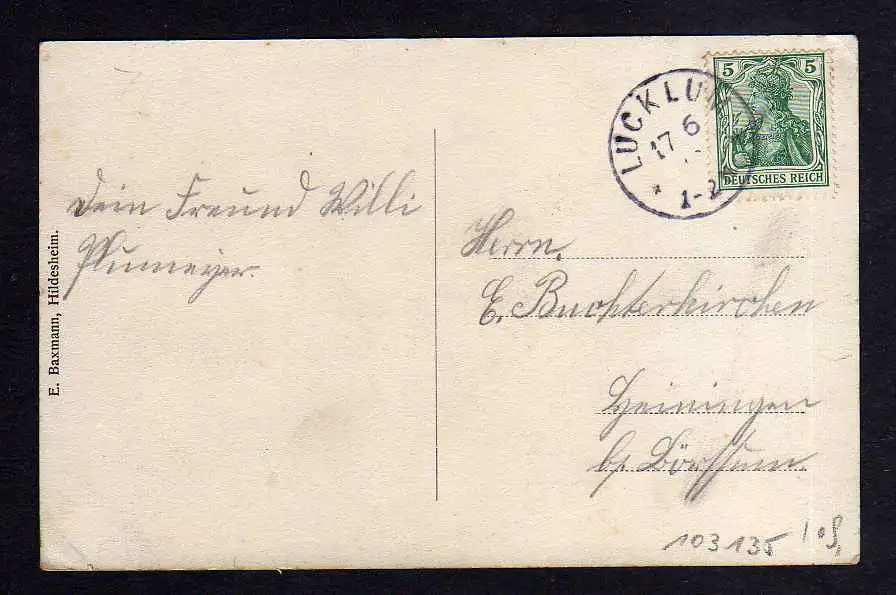 Dein Freund Willi
Plumeyer.
E. Baxmann, Hildesheim.
LUCKLUM
17 6
1-2
*
5 5
DEUTSCHES REICH
Herrn.
E. Buchterkirchen
Heiningen
b/ Börssum.
103135